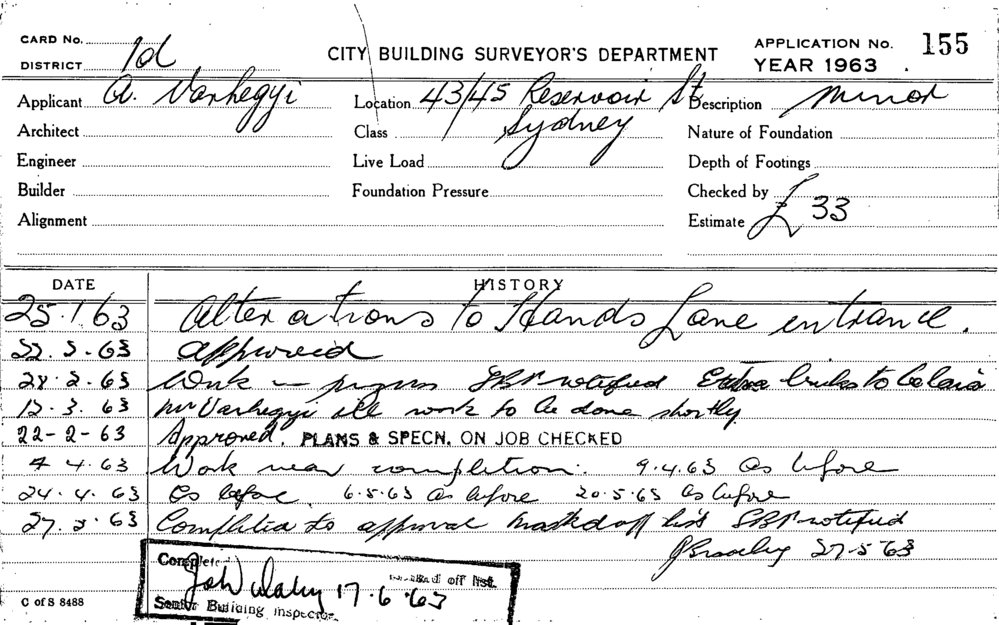 CARD No.
DISTRICT 1d
CITY BUILDING SURVEYOR'S DEPARTMENT
APPLICATION No. 155
YEAR 1963
Applicant A. Varhegyi
Location 43/45 Reservoir St
Sydney
Description Minor
Architect
Class
Nature of Foundation
Engineer
Live Load
Depth of Footings
Builder
Foundation Pressure
Checked by
Alignment
Estimate £ 33
DATE HISTORY
25.1.63 Alterations to Hands Lane entrance.
22.2.63 approved
28.2.63 Work in progress notified Extra bricks to be laid
12.3.63 Mr Varhegyi all work to be done shortly
22-2-63 Approved. PLANS & SPECN. ON JOB CHECKED
4.63 Work near completion. 9.4.63 As before
24.4.63 As before 6.5.63 as before 20.5.63 As before
27.5.63 Completed to approval marked off list notified
27-5-63
Completed off list.
17.6.63
Senior Building Inspector
C of S 8488